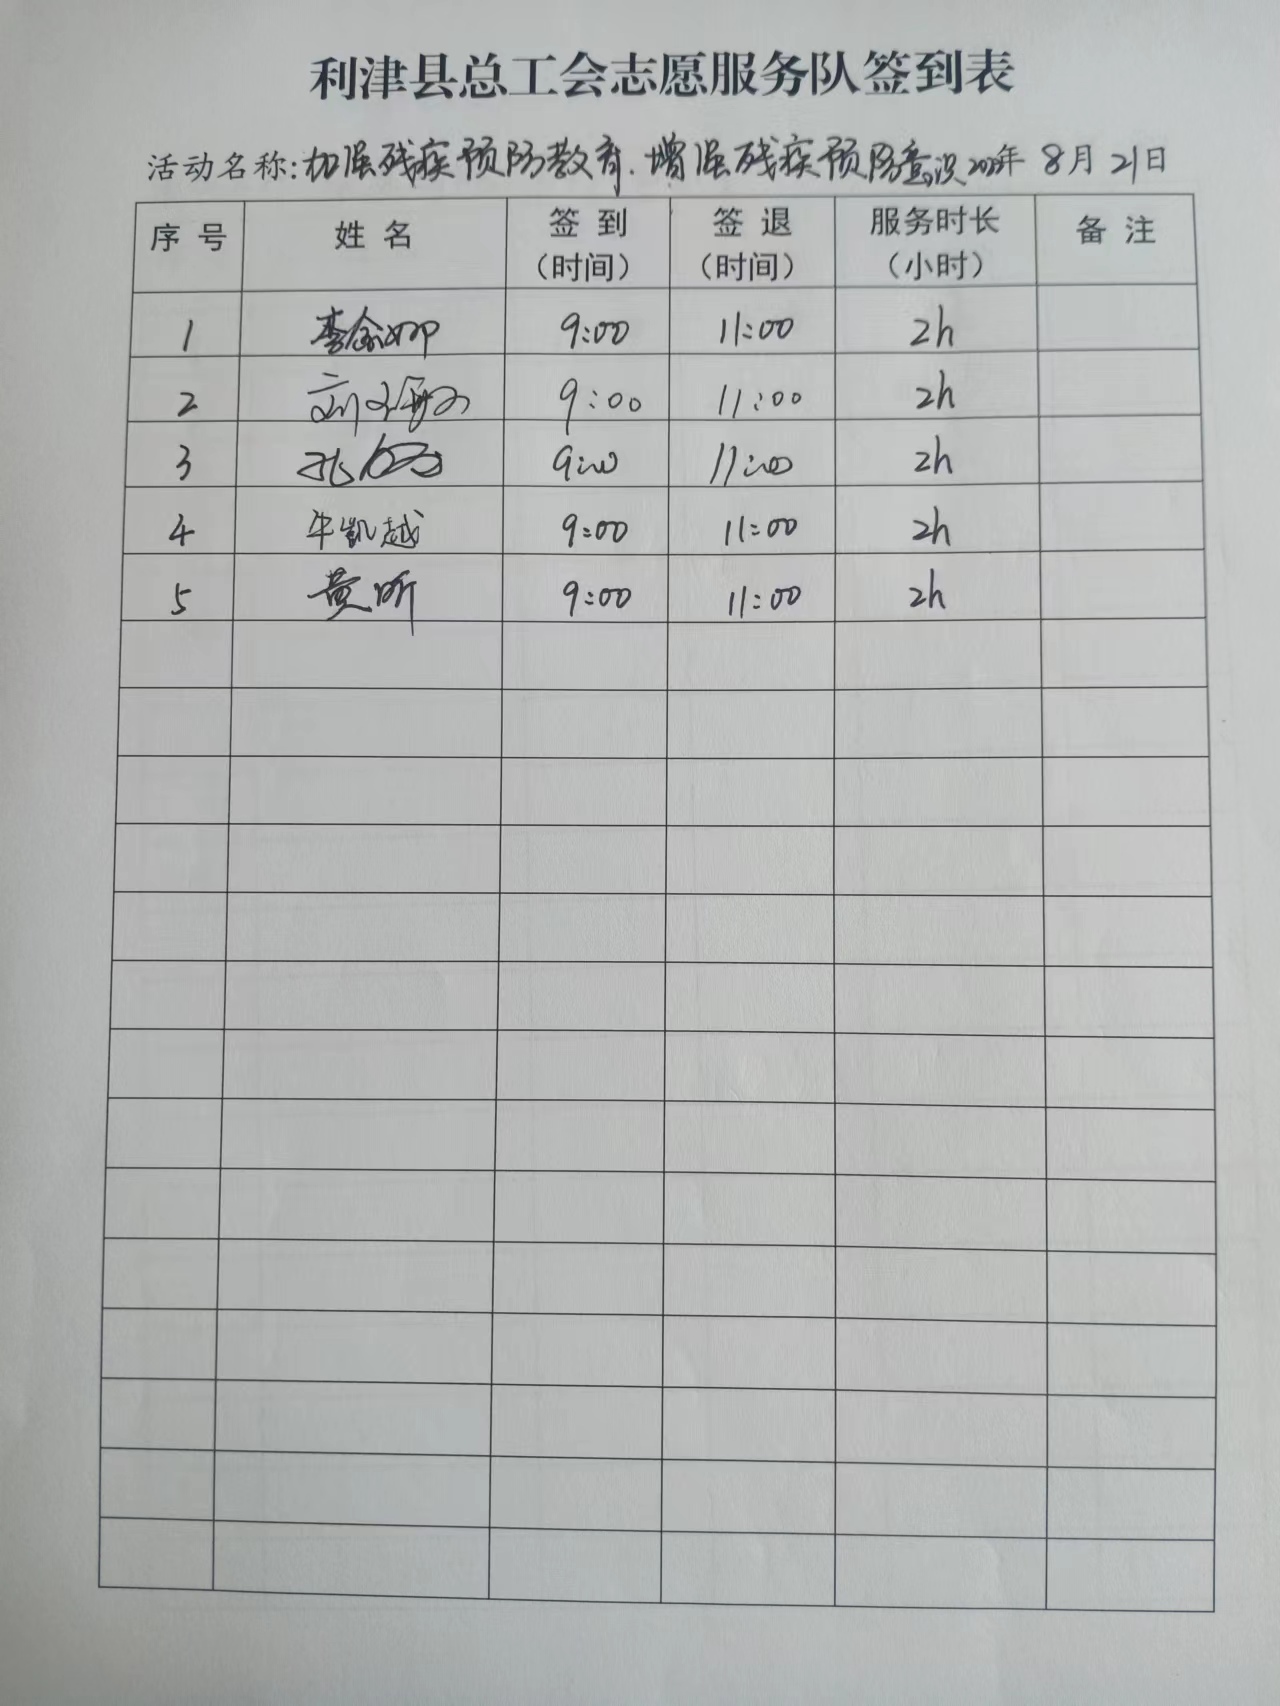 利津县总工会志愿服务队签到表
活动名称:加强残疾预防教育.增强残疾预防意识 年 8月21日
序号 姓名 签到(时间) 签退(时间) 服务时长(小时) 备注
1 李 娜 9:00 11:00 2h
2 刘 9:00 11:00 2h
3 9:00 11:00 2h
4 牛凯越 9:00 11:00 2h
5 黄昕 9:00 11:00 2h